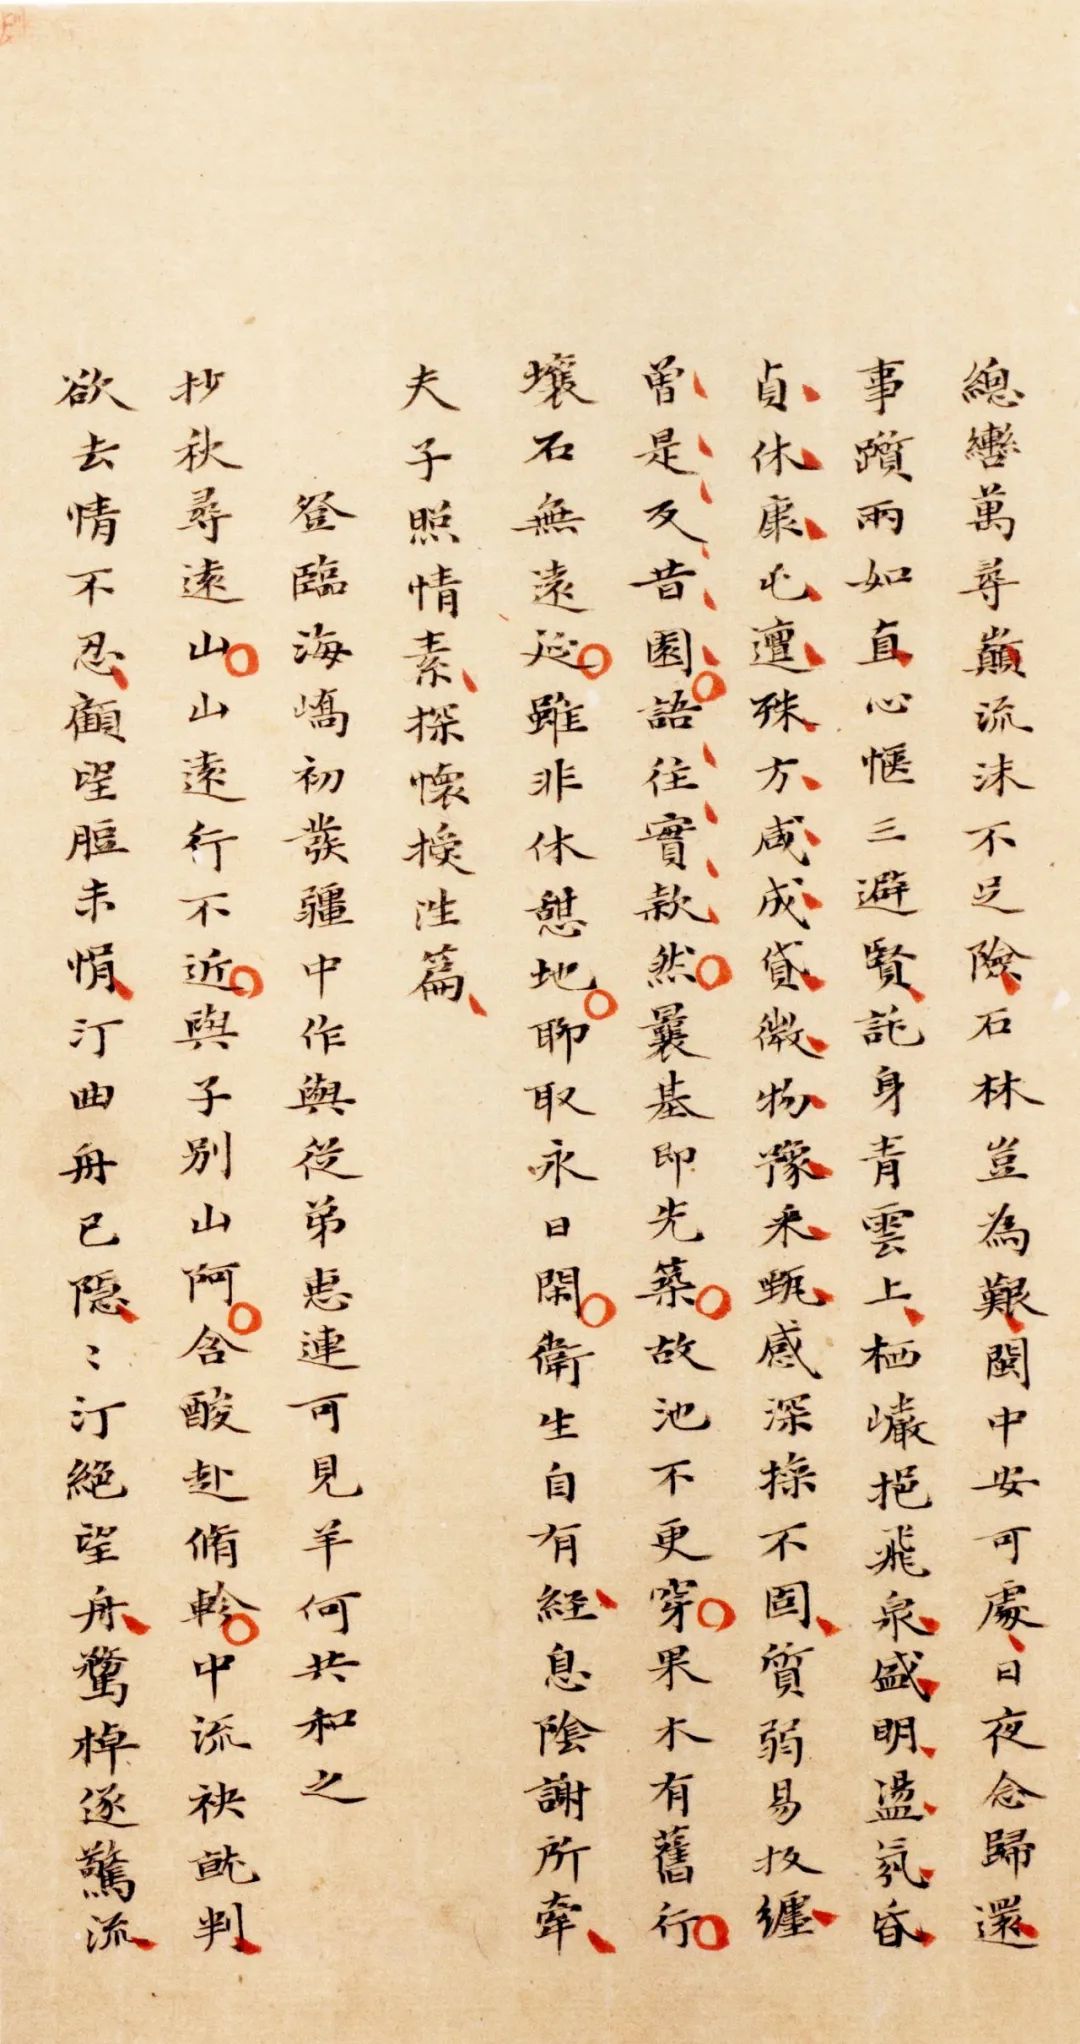 總轡萬尋巔流沫不足險石林豈為艱閩中安可處日夜念歸還
事躓兩如直心愜三避賢託身青雲上栖巗挹飛泉盛明盪氛昏
貞休康屯邅殊方咸成貸微物豫采甄感深操不固質弱易扳纏
曽是反昔園語往實款然曩基即先築故池不更穿果木有舊行
壤石無遠延雖非休憇地聊取永日閑衛生自有經息陰謝所牽
夫子照情素探懷授往篇
登臨海嶠初發疆中作與從弟惠連可見羊何共和之
杪秋尋遠山山遠行不近與子別山阿含酸赴脩軫中流袂就判
欲去情不忍顧望脰未悁汀曲舟已隱〻汀絕望舟騖棹逐驚流